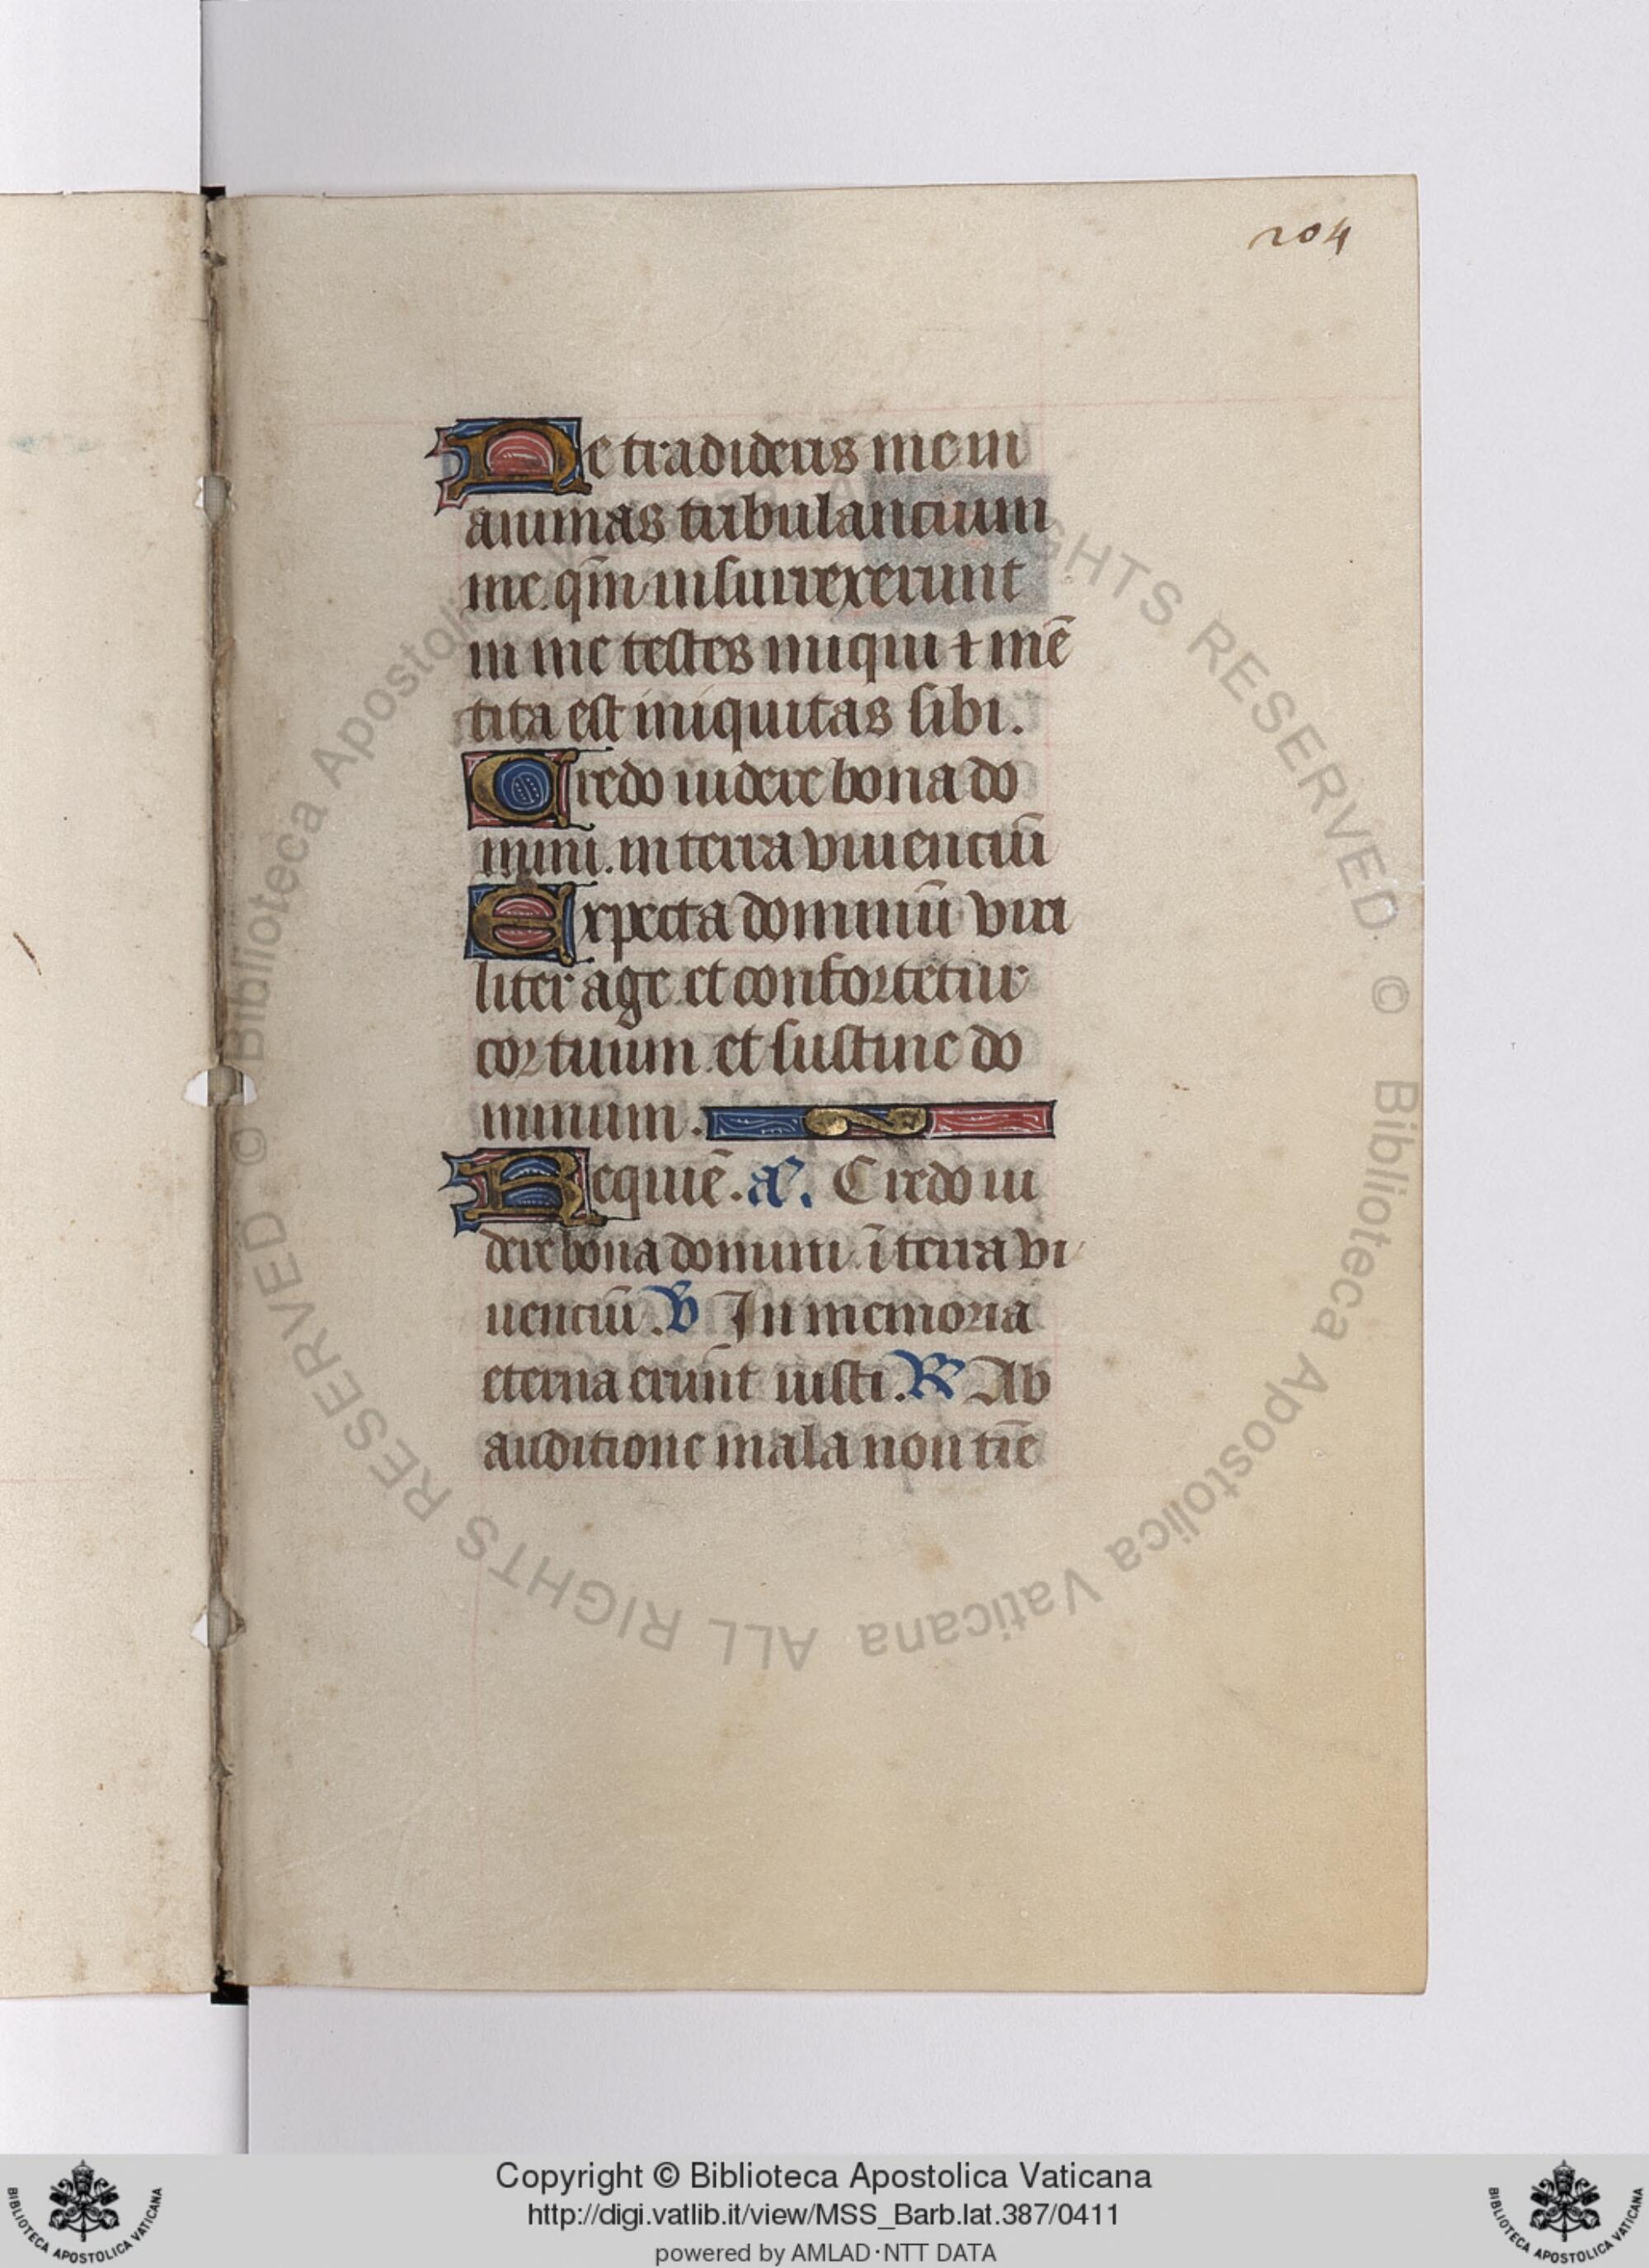 204
Ne tradideris me in
animas tribulancium
me. qm̄ insurrexerunt
in me testes iniqui ⁊ mē
tita est iniquitas sibi.
Credo uidere bona do
mini. in terra viuenciū
Expecta dominū viri
liter age. et confortetur
cor tuum. et sustine do
minum.
Requiē. a͞. Credo ui
dere bona domini. ī terra vi
uenciū. V̄ In memoria
eterna erunt iusti. R̄ Ab
auditione mala non tīe
© Biblioteca Apostolica Vaticana ALL RIGHTS RESERVED.
Copyright © Biblioteca Apostolica Vaticana
http://digi.vatlib.it/view/MSS_Barb.lat.387/0411
powered by AMLAD·NTT DATA
BIBLIOTECA APOSTOLICA VATICANA
BIBLIOTECA APOSTOLICA VATICANA